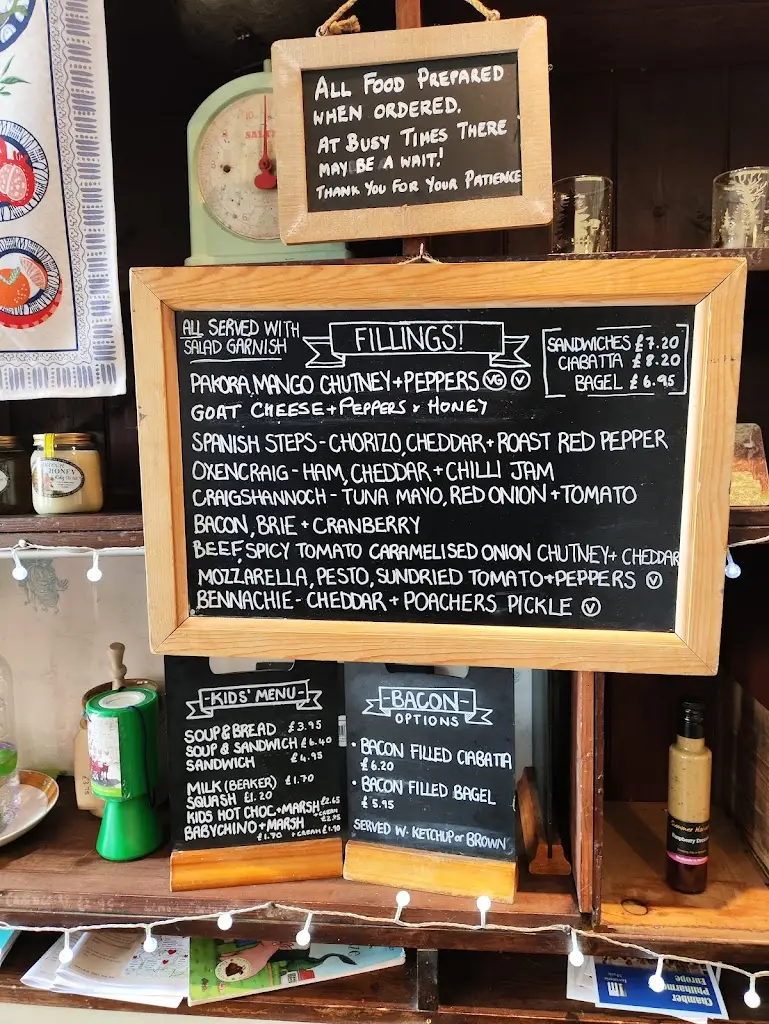 ALL FOOD PREPARED
WHEN ORDERED.
AT BUSY TIMES THERE
MAY BE A WAIT!
THANK YOU FOR YOUR PATIENCE
ALL SERVED WITH
SALAD GARNISH
FILLINGS!
SANDWICHES £7.20
CIABATTA £8.20
BAGEL £6.95
PAKORA, MANGO CHUTNEY + PEPPERS VG V
GOAT CHEESE + PEPPERS + HONEY
SPANISH STEPS - CHORIZO, CHEDDAR + ROAST RED PEPPER
OXENCRAIG - HAM, CHEDDAR + CHILLI JAM
CRAIGSHANNOCH - TUNA MAYO, RED ONION + TOMATO
BACON, BRIE + CRANBERRY
BEEF, SPICY TOMATO CARAMELISED ONION CHUTNEY + CHEDDAR
MOZZARELLA, PESTO, SUNDRIED TOMATO + PEPPERS V
BENNACHIE - CHEDDAR + POACHERS PICKLE V
-KIDS' MENU-
SOUP & BREAD £3.95
SOUP & SANDWICH £6.40
SANDWICH £4.95
MILK (BEAKER) £1.70
SQUASH £1.20
KIDS HOT CHOC + MARSH £2.65
+ CREAM £2.95
BABYCHINO + MARSH
£1.70 + CREAM £1.90
-BACON-
OPTIONS
• BACON FILLED CIABATTA
£6.20
• BACON FILLED BAGEL
£5.95
SERVED W. KETCHUP or BROWN
HONEY
Summer Har
Raspberry
Chamber
Philharmo
Europe